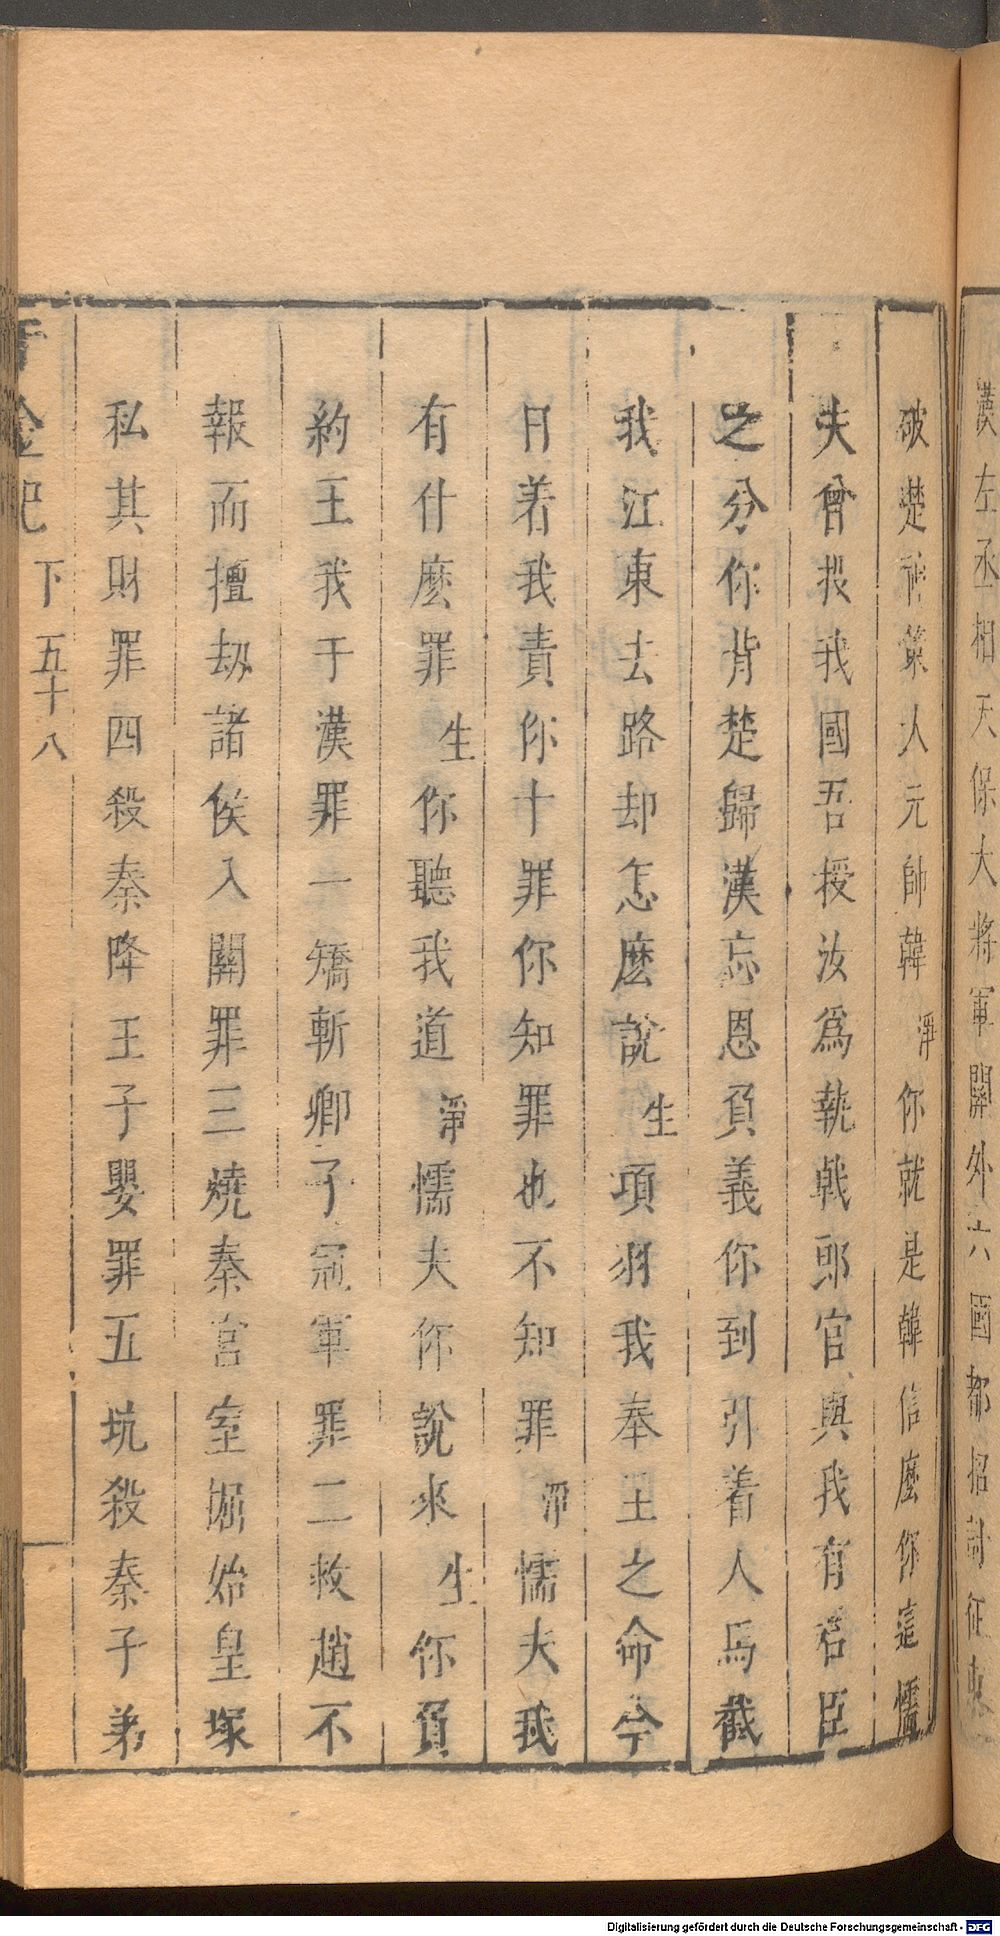 漢左丞相天保大將軍關外六國都招討征東
破楚神策大元帥韓淨你就是韓信麼你這懦
夫曾投我國吾授汝爲執戟郎官與我有君臣
之分你背楚歸漢忘恩負義你到引着人馬截
我江東去路却怎麽說生項羽我奉王之命今
日着我責你十罪你知罪也不知罪淨懦夫我
有什麽罪生你聽我道淨懦夫你說來生你負
約王我于漢罪一矯斬卿子冠軍罪二救趙不
報而擅劫諸侯入關罪三燒秦宮室掘始皇塚
私其財罪四殺秦降王子嬰罪五坑殺秦子弟
千金記 下 五十八
Digitalisierung gefördert durch die Deutsche Forschungsgemeinschaft - DFG